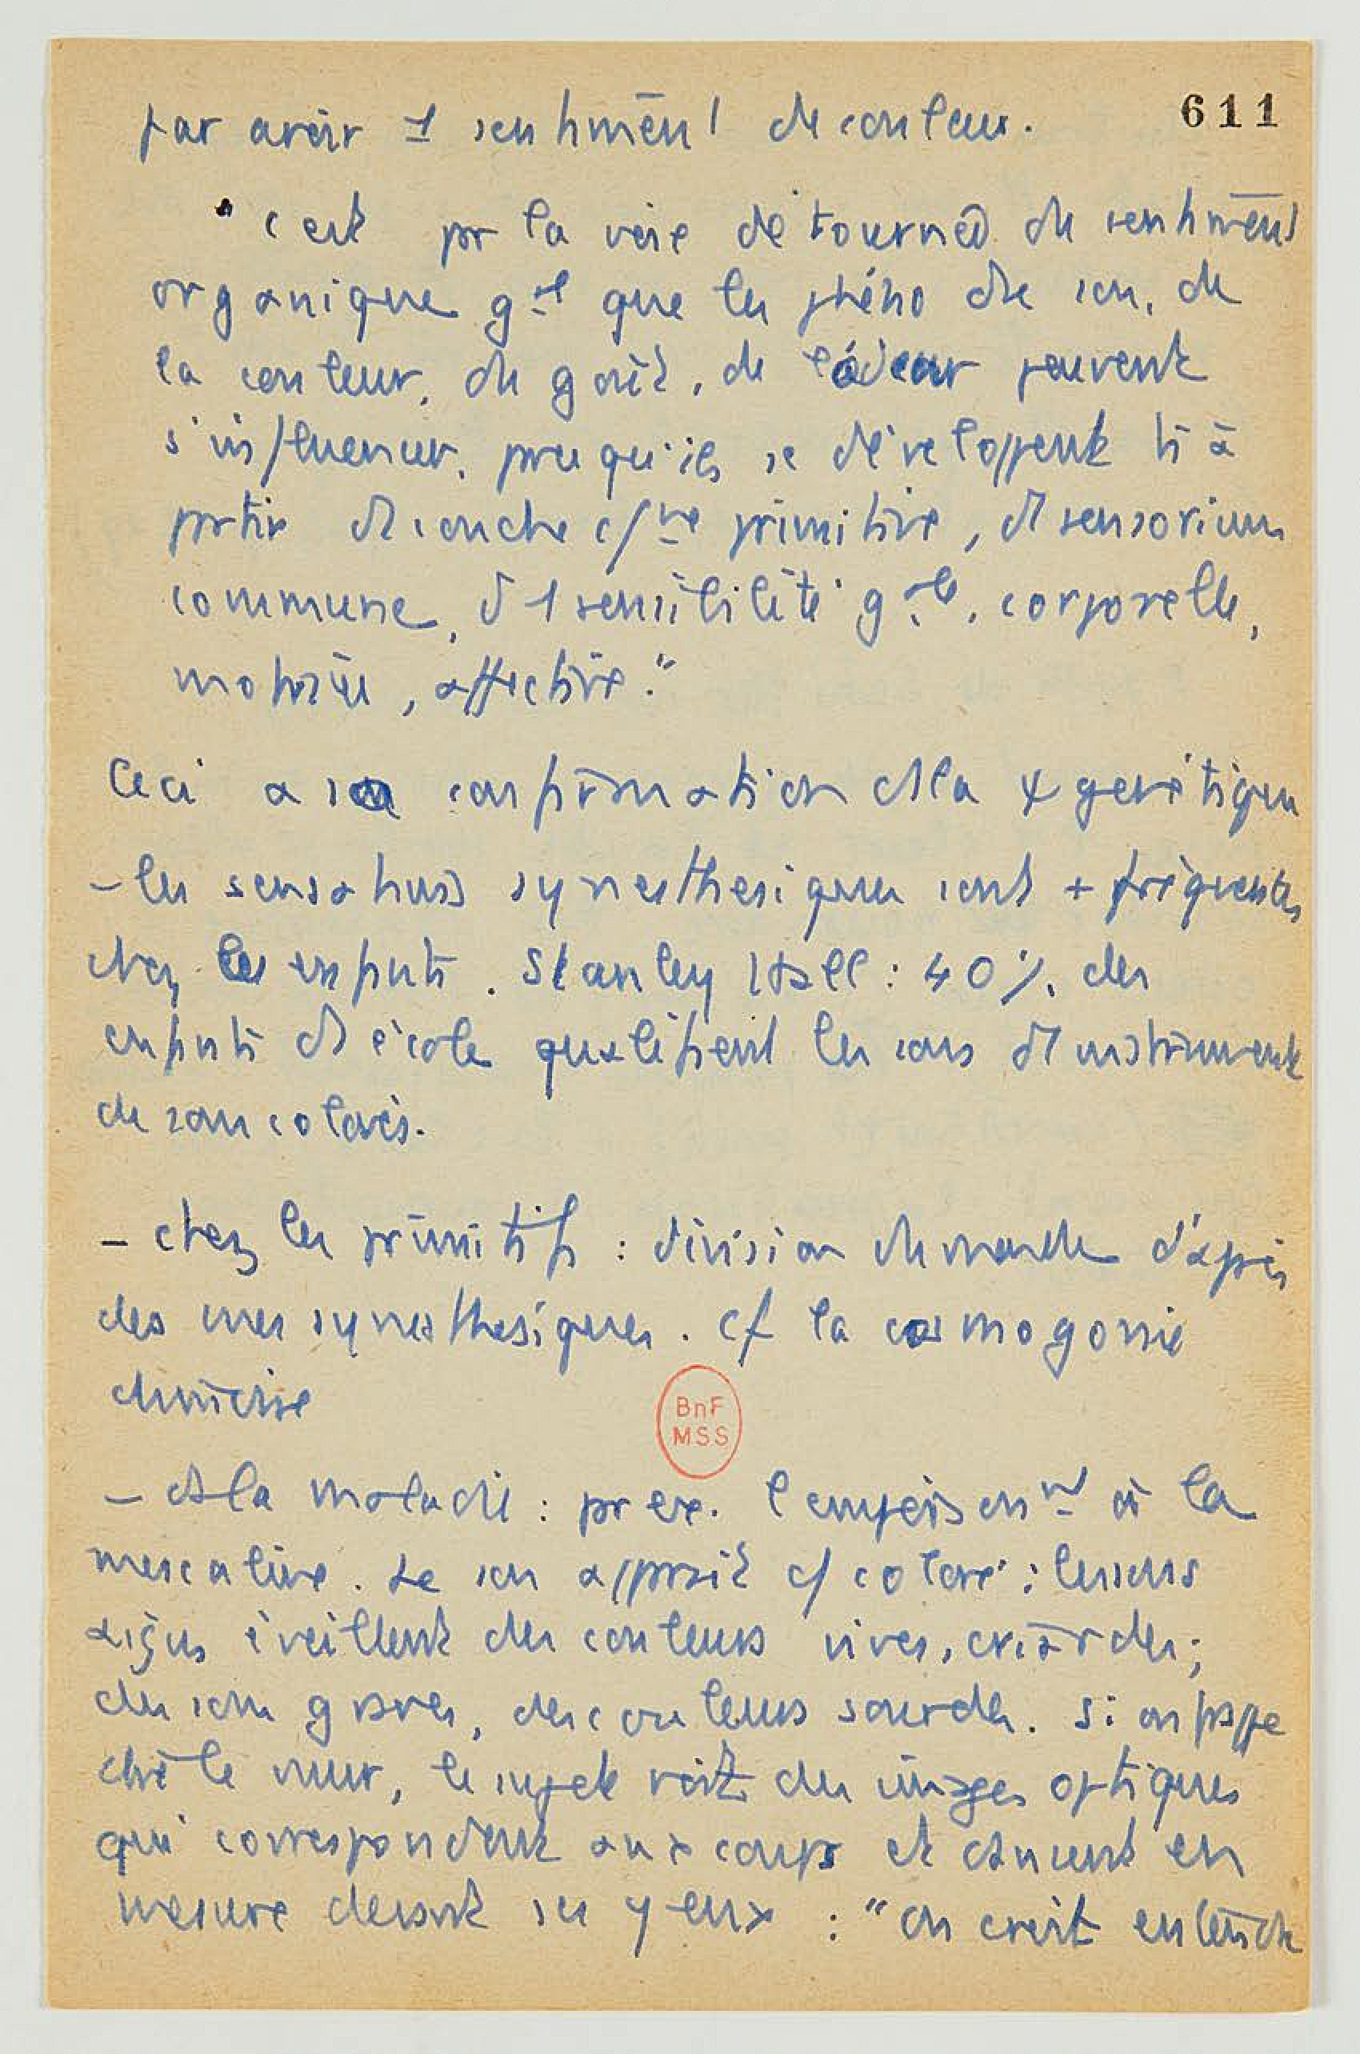 611
par avoir 1 sentiment de couleur.
"c'est par la voie détournée du sentiment
organique gal que les phéno de son, de
la couleur, du goût, de l'odeur peuvent
s'influencer, pcq qu'ils se développent ts à
partir de couche c/ve primitive, d sensorium
commune, d 1 sensibilité gale, corporelle,
motrice, affective."
Ceci a sa confirmation ds la ψ génétique
– les sensations synesthésiques sont + fréquentes
chez les enfants. Stanley Hall : 40 %. des
enfants d école qualifient les sons d instruments
de sons colorés.
– chez les primitifs : division du monde d'après
des  synesthésiques. cf la cosmogonie
chinoise
– ds la maladie : pr ex. l'empoisonnt à la
mescaline. Le son apparaît c/ coloré : les sons
aigus éveillent des couleurs vives, criardes ;
des sons graves, des couleurs sourdes. Si on frappe
ctre le mur, le sujet voit des images optiques
qui correspondent aux coups et dansent en
mesure devant ses yeux : "on croit entendre
BnF
MSS